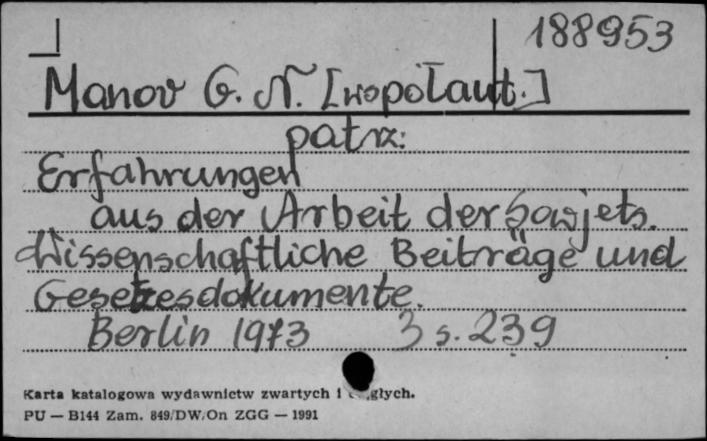 188953
Manov G. N. [współaut.]
patrz:
Erfahrungen
aus der Arbeit der Sowjets.
Wissenschaftliche Beiträge und
Gesetzesdokumente.
Berlin 1973 3 s. 239
Karta katalogowa wydawnictw zwartych i
PU — B144 Zam. 849/DW/On ZGG — 1991